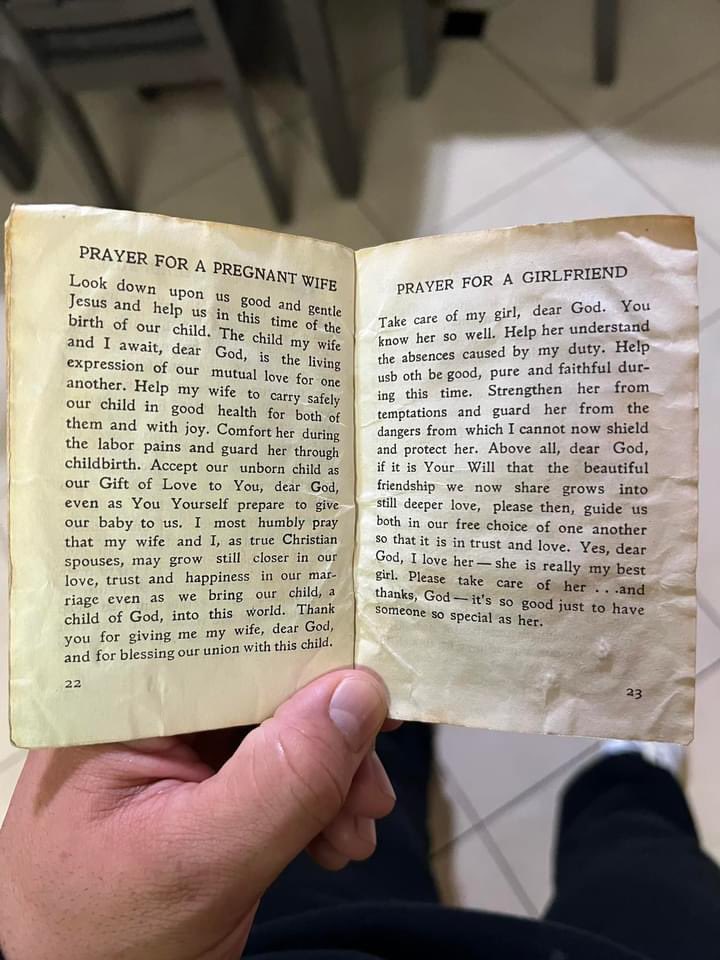 PRAYER FOR A PREGNANT WIFE
Look down upon us good and gentle
Jesus and help us in this time of the
birth of our child. The child my wife
and I await, dear God, is the living
expression of our mutual love for one
another. Help my wife to carry safely
our child in good health for both of
them and with joy. Comfort her during
the labor pains and guard her through
childbirth. Accept our unborn child as
our Gift of Love to You, dear God,
even as You Yourself prepare to give
our baby to us. I most humbly pray
that my wife and I, as true Christian
spouses, may grow still closer in our
love, trust and happiness in our mar-
riage even as we bring our child, a
child of God, into this world. Thank
you for giving me my wife, dear God,
and for blessing our union with this child.
22
PRAYER FOR A GIRLFRIEND
Take care of my girl, dear God. You
know her so well. Help her understand
the absences caused by my duty. Help
usb oth be good, pure and faithful dur-
ing this time. Strengthen her from
temptations and guard her from the
dangers from which I cannot now shield
and protect her. Above all, dear God,
if it is Your Will that the beautiful
friendship we now share grows into
still deeper love, please then, guide us
both in our free choice of one another
so that it is in trust and love. Yes, dear
God, I love her — she is really my best
girl. Please take care of her . . .and
thanks, God — it's so good just to have
someone so special as her.
23